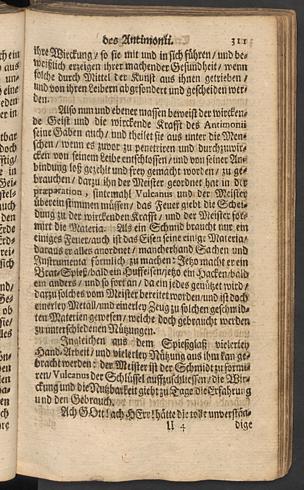 des Antimonii. 311
ihre Wirckung / so sie mit und in sich führen / und be-
weißlich erzeigen ihrer machender Gesundheit / wenn
solche durch Mittel der Kunst aus ihnen getrieben /
und von ihren Leibern abgesondert und gescheiden wer-
den.
Also nun und ebener massen beweist der wircken-
de Geist und die wirckende Krafft des Antimonii
seine Gaben auch / und theilet sie aus unter die Men-
schen / wenn es zuvor zu penetriren und durchzuwir-
cken von seinem Leibe entschlossen / und von seiner An-
bindung loß gezehlt und frey gemacht worden / zu ge-
brauchen / darzu ihn der Meister geordnet hat in der
præparation, sintemahl Vulcanus und der Meister
überein stimmen müssen / das Feuer giebt die Schei-
dung zu der wirckenden Krafft / und der Meister for-
mirt die Materia. Als ein Schmid braucht nur ein
einiges Feuer / auch ist das Eisen seine einige Materia /
daraus er allen anordnet / mancherhand Sachen und
Instrumenta förmlich zu machen: Jetzo macht er ein
Brat-Spieß / bald ein Huffeisen / jetzo ein Hacken / bald
ein anders / und so fort an / da ein jedes genützt wird /
darzu solches vom Meister bereitet worden / und ist doch
einerley Metall / und einerley Zeug zu solchen geschmid-
ten Materien gewesen / welche doch gebraucht werden
zu unterschiedenen Nützungen.
Ingleichen aus dem Spießglaß vielerley
Hand-Arbeit / und vielerley Nützung aus ihm kan ge-
bracht werden: der Meister ist der Schmidt zu formi-
ren / Vulcanus der Schlüssel auffzuschliessen / die Wir-
ckung und die Nutzbarkeit giebt zu Tage die Erfahrung
und den Gebrauch.
Ach GOtt! ach HErr! hätte die unverstän-
U 4 dige